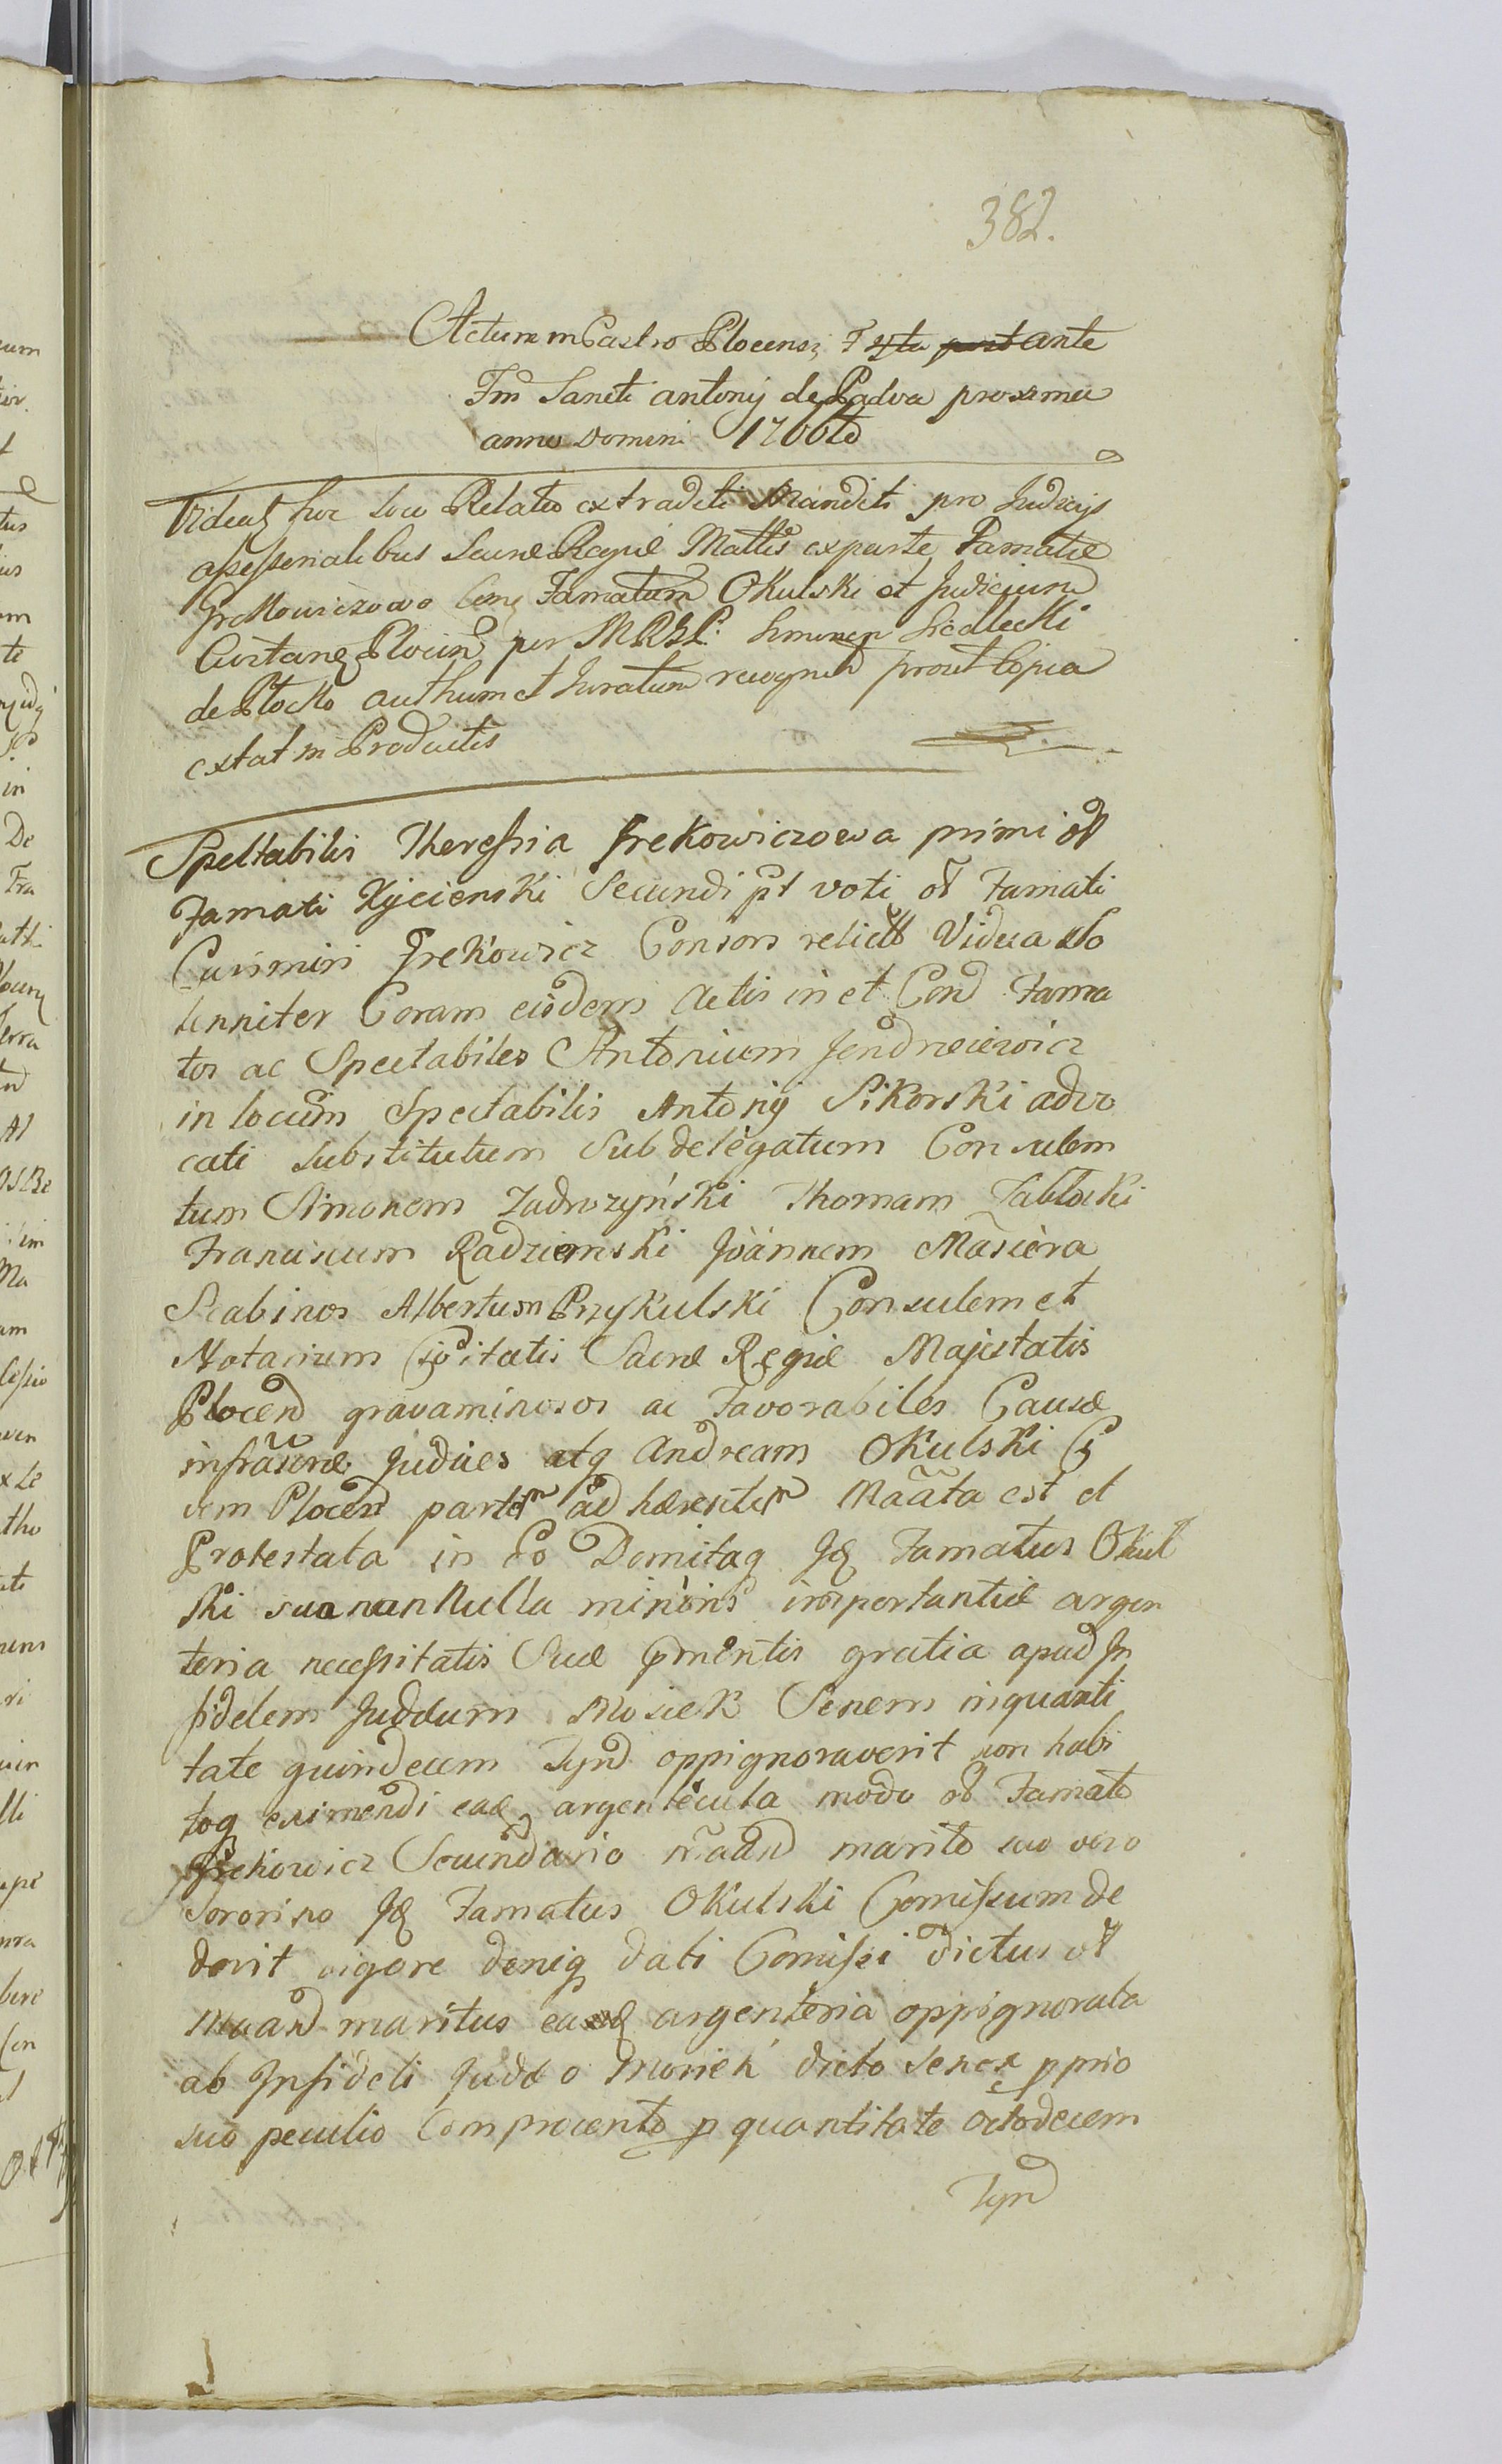 382.
Actum in Castro Plocensi Fr 4ta post ante
Fm Sancti antonij de Padva proxima
anno Domini 1766to
Videat hoc loco Relatio extraditi Mandati pro Judicijs
assessorialibus Sacræ Regiæ Mattis ex parte Famatæ
Grekowiczowa Famatum Okulski et Judicium
Plocen per MRGL: Simonem Siedlecki
de Plocko authum et Juratum recognit prout Copia
extat in Productis
Spectabilis Theressia Grekowiczowa primi ol
Famati Kijcienski Secundi pt voti ol Famati
Casimiri Grekowicz Consors relicta Vidua so
lenniter Coram eisdem Actis in et Con Fama
tos ac Spectabiles Antonium Jendrzeiewicz
in locum Spectabilis Antonij Sikorski advo
cati substitutum Subdelegatum Consulem
tum Simonem Zadrozyński Thomam Jabłoski
Franciscum Radziemski Joannem Masiera
Scabinos Albertum Przykulski Consulem et
Notarium Civitatis Sacræ Regiæ Majestatis
Plocen gravaminosos ac Favorabiles Causæ
infrascræ Judices atq Andream Okulski Ci
vem Plocen partem adhærentem Maãta est et
Protestata in Eo Domitaq Jd Famatus Okul
ski sua nonnulla minoris importantiæ argen
teria necessitatis Suæ prementis gratia apud In
fidelem Judæum Mosiek Senem in quanti
tate quindecem Tyn oppignoraverit non habi
toq eximendi eadq argentecula modo ol Famato
Grekowicz Secundario mãan marito suo vero
Sororino Jd Famatus Okulski Comissum de
derit vigore deniq dati Comissi dictus ol
Maan maritus eadq argenteria oppignorata
ab Infideli Judæo Mosiek dicto Senex pprio
suo peculio Comprocento p quantitate octodecem
Tyn